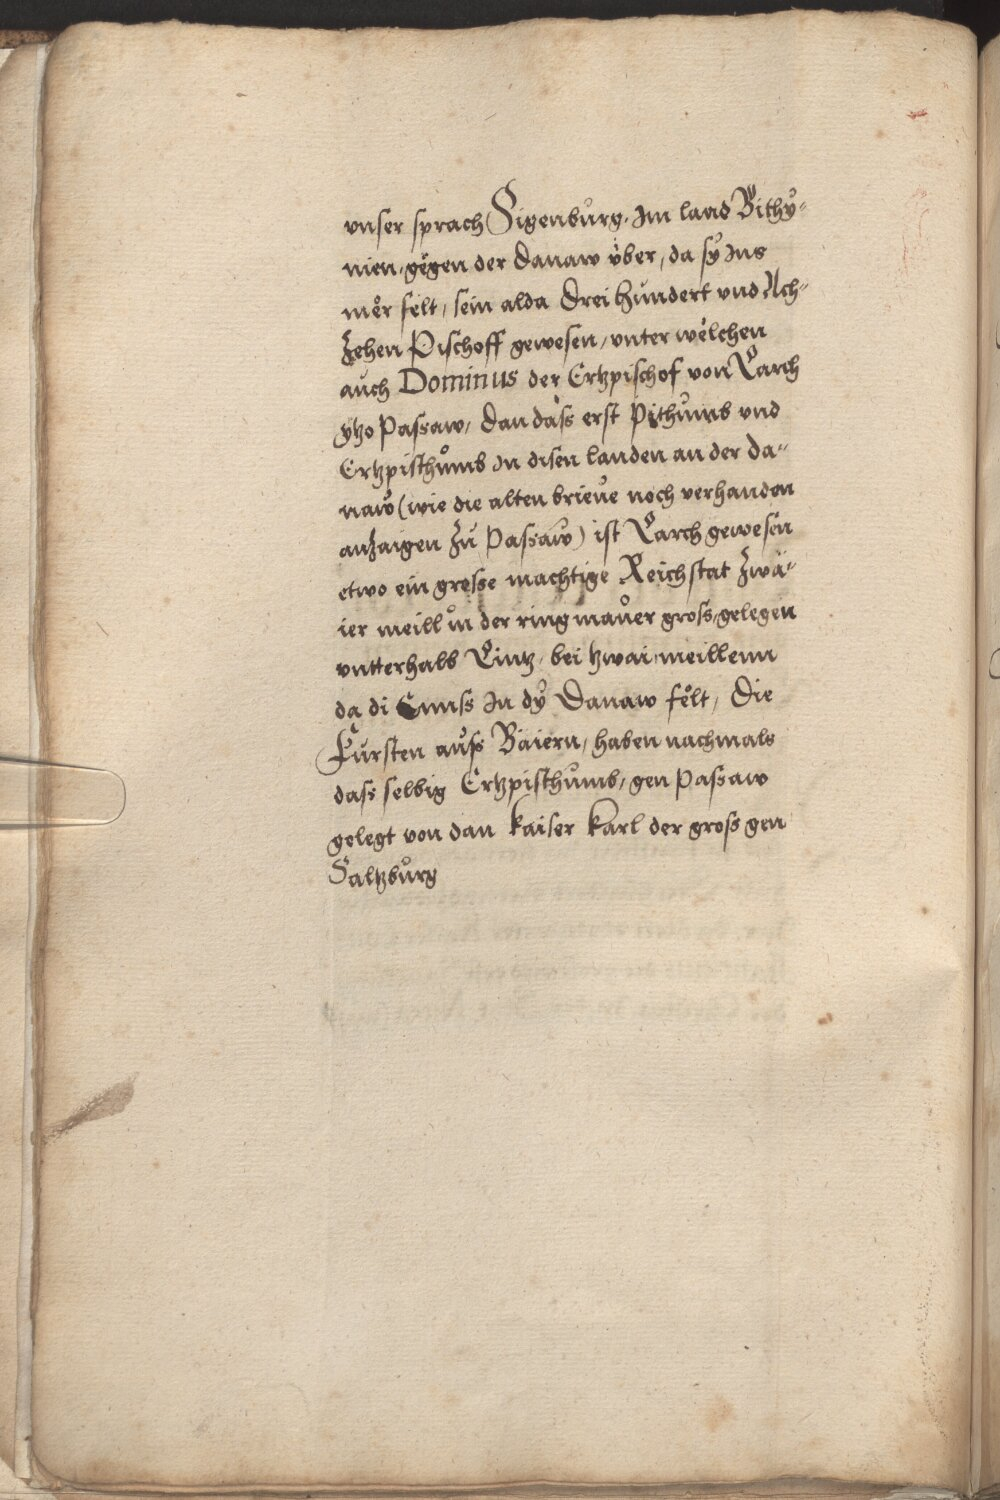 vnser sprach Sigenburg, Im land Bithÿ-
nien, gëgen der Danaw vber, da sÿ Ins
mër felt, sein alda Drei hundert vnd Ach-
zehen Pischoff gewesen, vnter wëlchen
auch Dominus der Ertzpischof von Larch
ytzo Passaw, Dan dass erst Pithumb vnd
Ertzpisthumb In disen landen an der Da-
naw (wie die alten brieue noch verhanden
anzaigen zu Passaw) ist Larch gewesen
etwo ein grosse machtige Reichstat zwä-
ier meill in der ringmauer gross, gelegen
vntterhalb Lintz, bei tzwai meillenn
da di Ennss In dÿ Danaw fëlt, Die
Fursten auss Baiern, haben nachmals
dass selbig Ertzpisthumb, gen Passaw
gelegt von dan kaiser karl der gross gen
Saltzburg